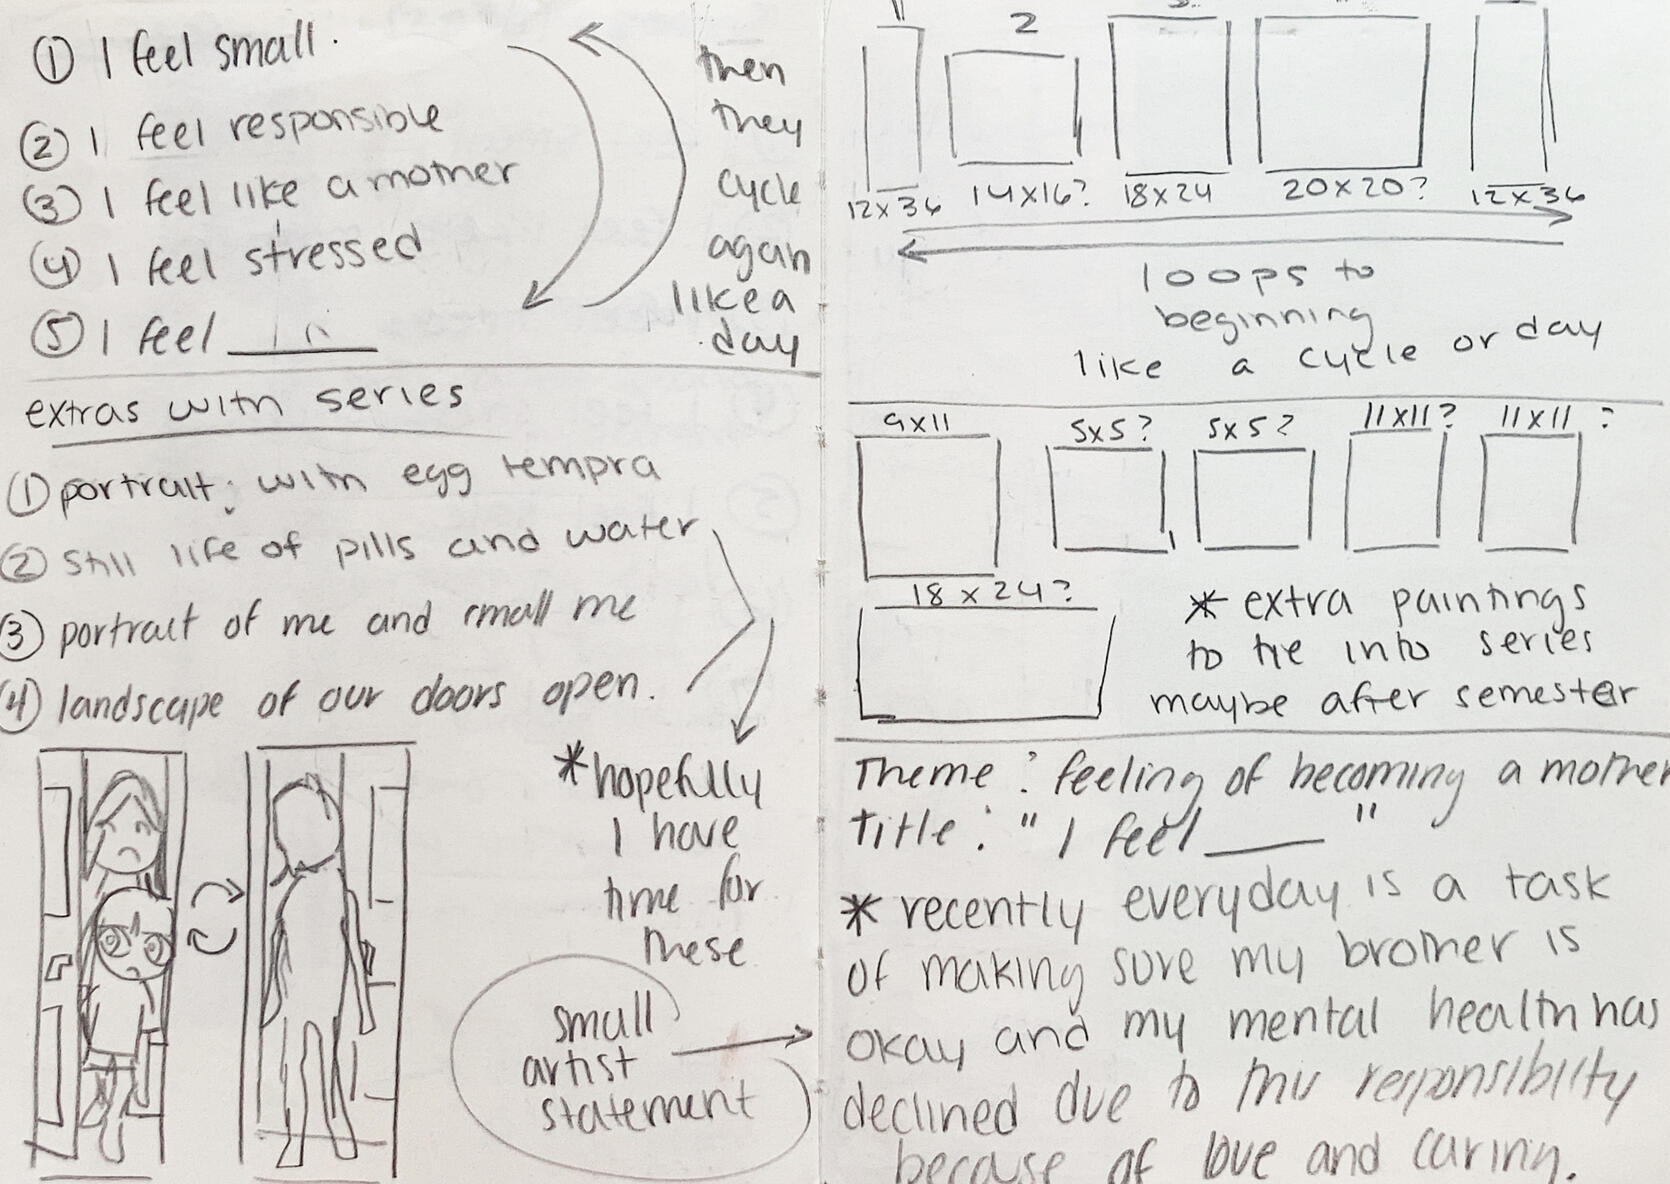 ① I feel small.
② I feel responsible
③ I feel like a mother
④ I feel stressed
⑤ I feel ______
then
they
cycle
again
like a
day
extras with series
① portrait: with egg tempra
② still life of pills and water
③ portrait of me and small me
④ landscape of our doors open.
* hopefully
I have
time for
these
small
artist
statement
2
12x36 14x16? 18x24 20x20? 12x36
loops to
beginning
like a cycle or day
9x11 5x5? 5x5? 11x11? 11x11?
18x24?
* extra paintings
to tie into series
maybe after semester
Theme: feeling of becoming a mother
title: "I feel ______"
* recently everyday is a task
of making sure my brother is
okay and my mental health has
declined due to this responsibility
because of love and caring.